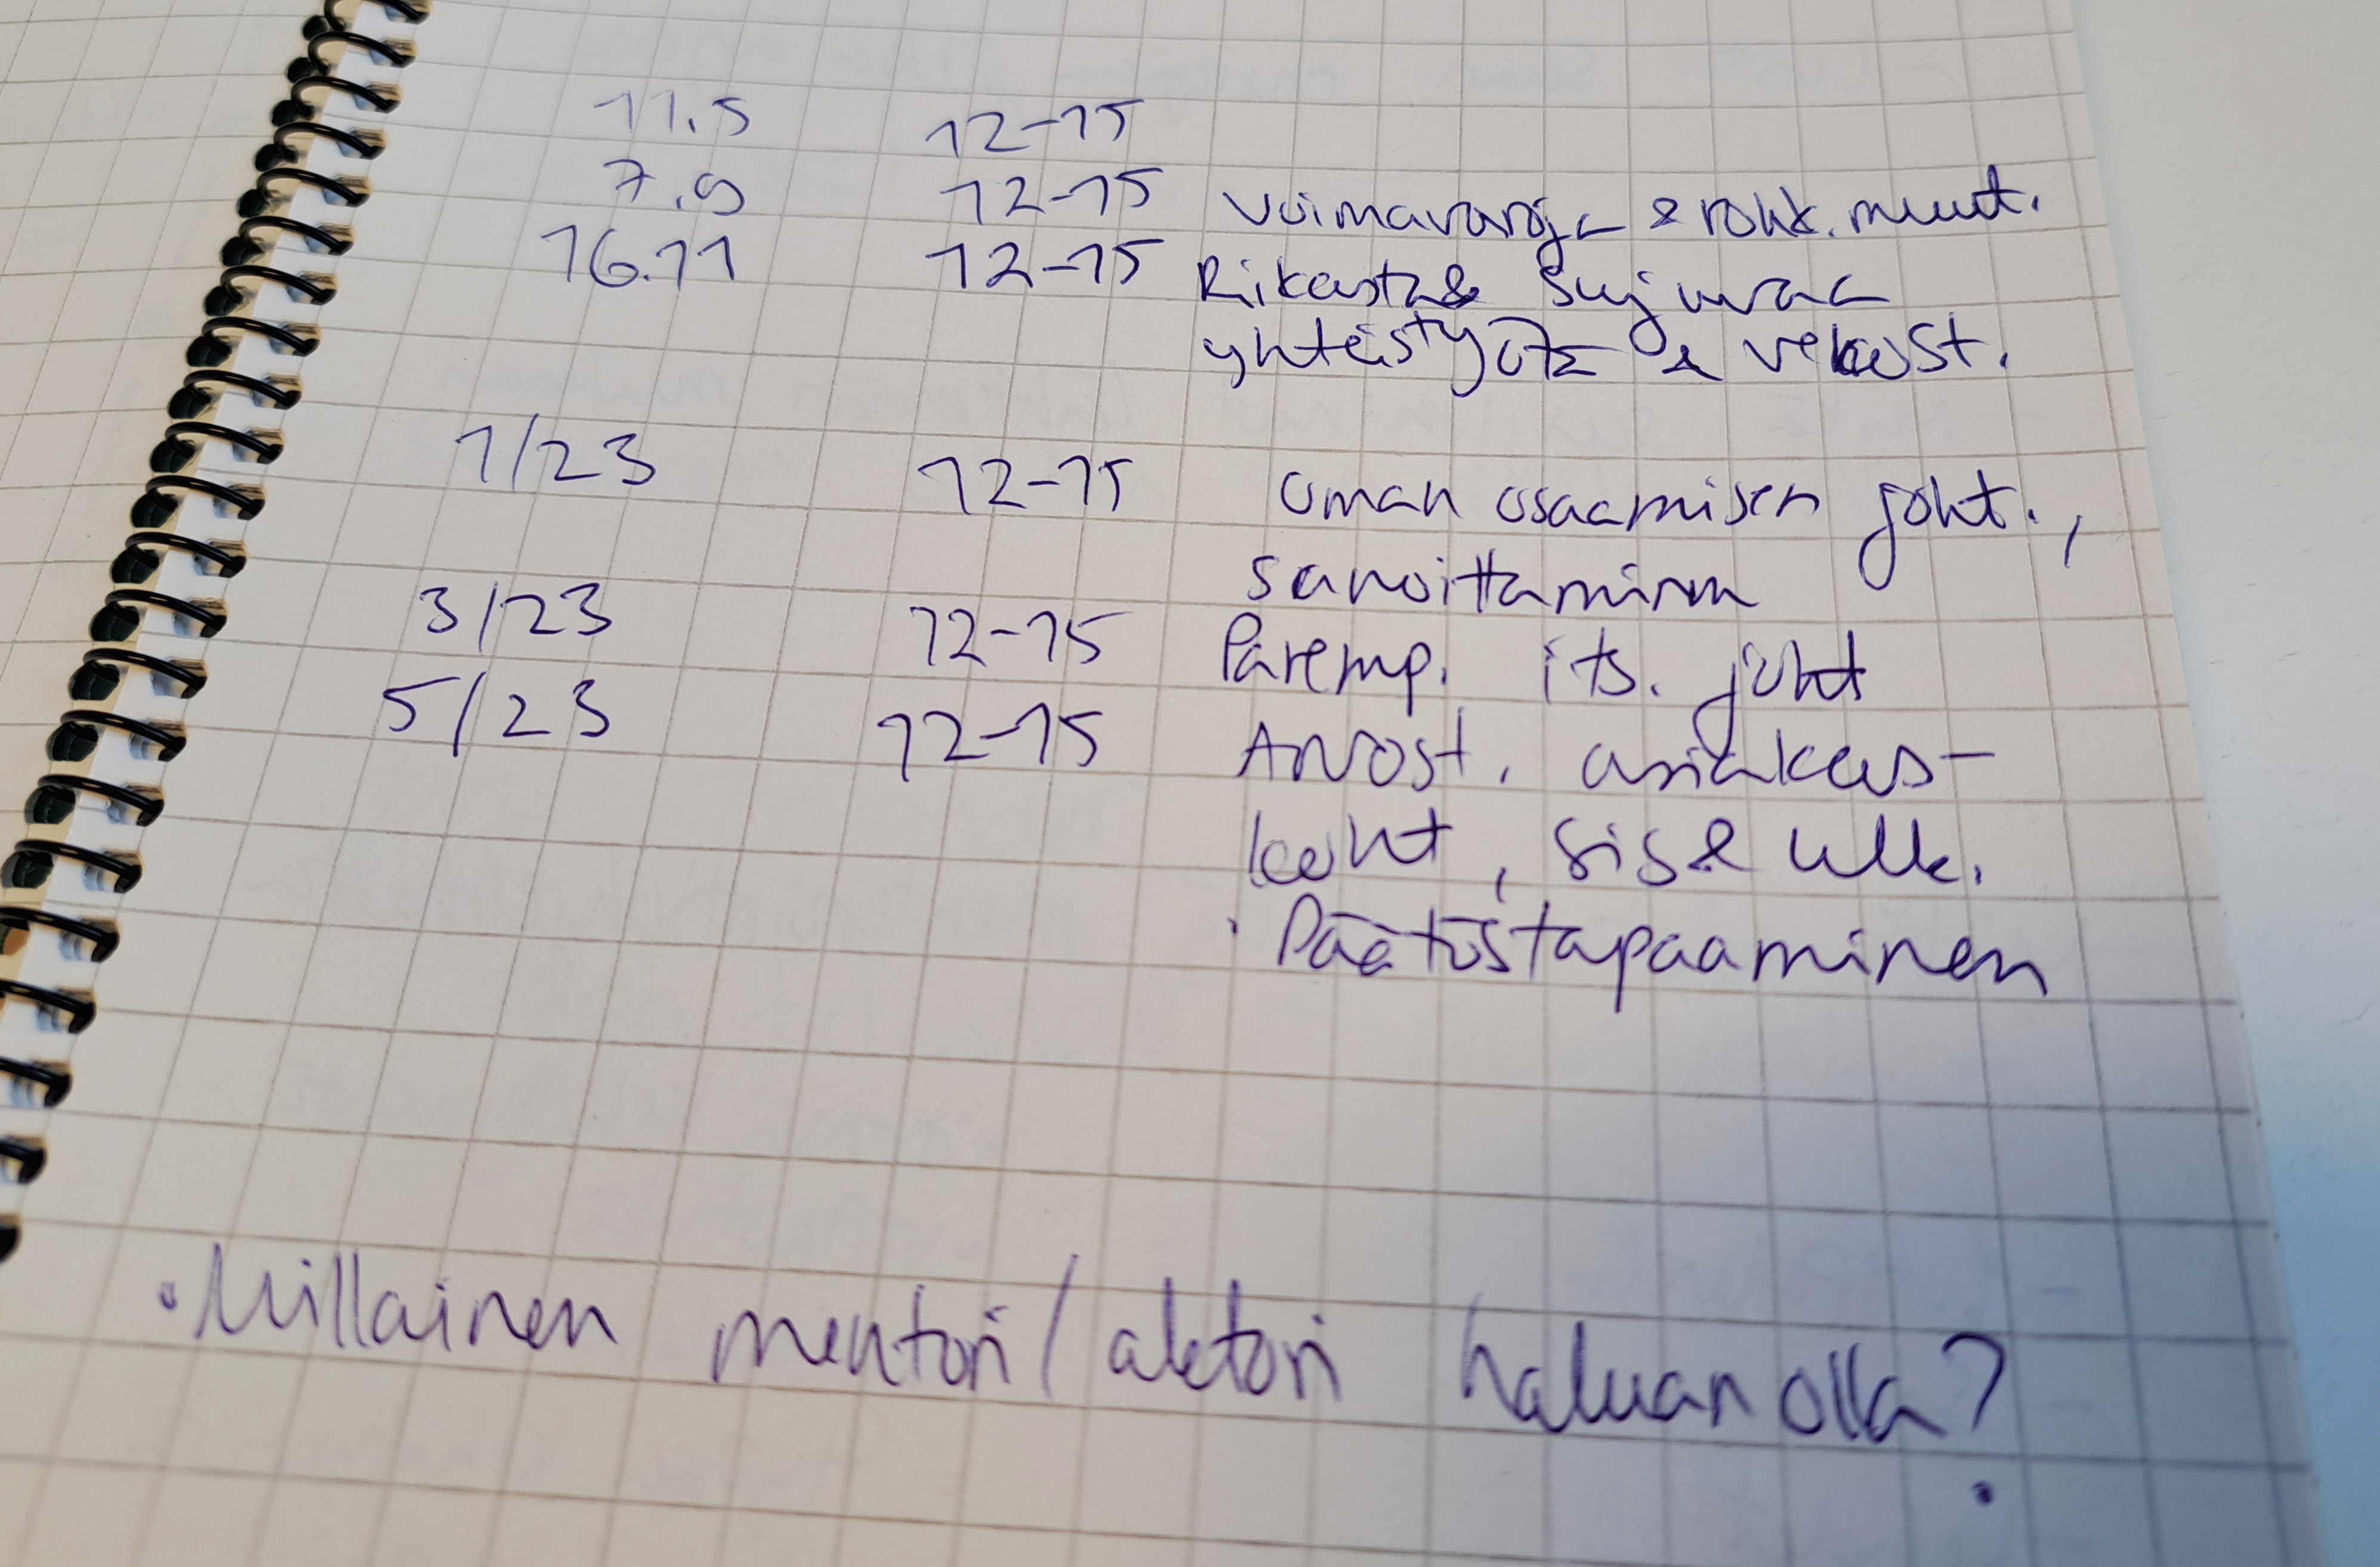 11.5 12-15
7.9 12-15 Voimavaroja & rohk. muut.
16.11 12-15 Rikasta & sujuvaa
yhteistyötä & verkost.
1/23 12-15 Oman osaamisen joht.,
sanoittaminen
3/23 12-15 Paremp. its. joht
5/23 12-15 Arvost. asiakas-
koht, sis & ulk.
· Päätöstapaaminen
· Millainen mentori/aktori haluan olla?